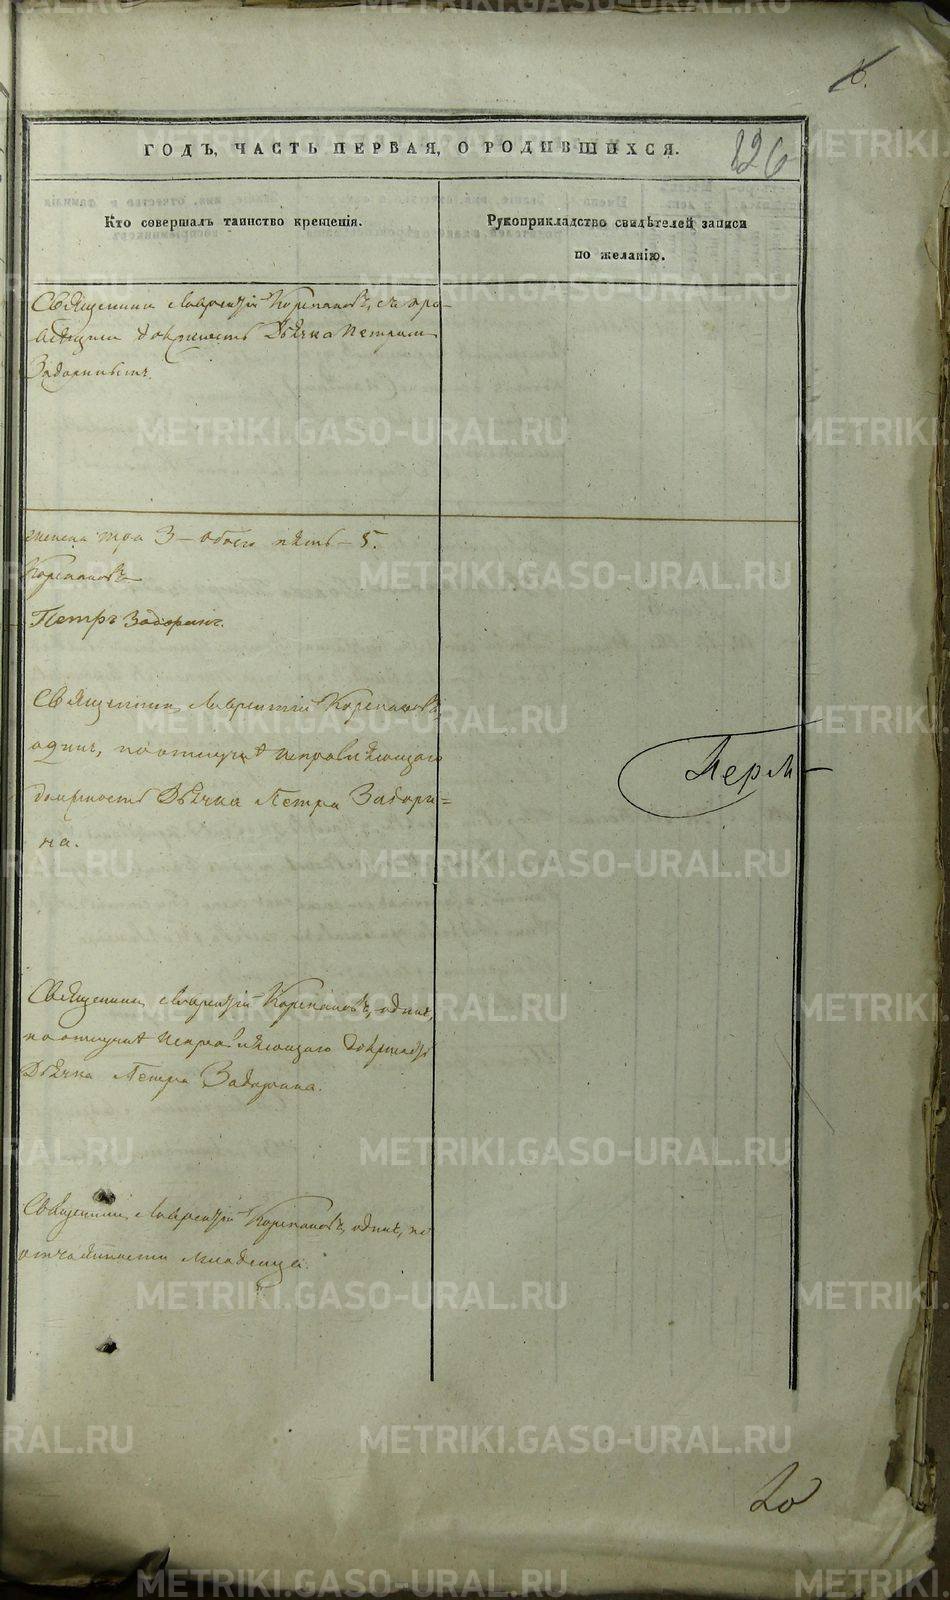 126
ГОДЪ, ЧАСТЬ ПЕРВАЯ, О РОДИВШИХСЯ.
Кто совершалъ таинство крещенія.
Рукоприкладство свидѣтелей записи
по желанію.
Священникъ Лаврентій Корепановъ, съ
должность Дьячка Петромъ
Задоринымъ.
женска три 3 – обоего пять – 5.
Корепановъ
Петръ Задоринъ.
Священникъ Лаврентій Корепановъ,
одинъ, по отлучкѣ исправляющаго
должность Дьячка Петра Задори=
на.
Перм-
Священникъ Лаврентій Корепановъ, одинъ,
по отлучкѣ исправляющаго должность
Дьячка Петра Задорина.
Священникъ Лаврентій Корепановъ, одинъ, по
младенца.
20
METRIKI.GASO-URAL.RU